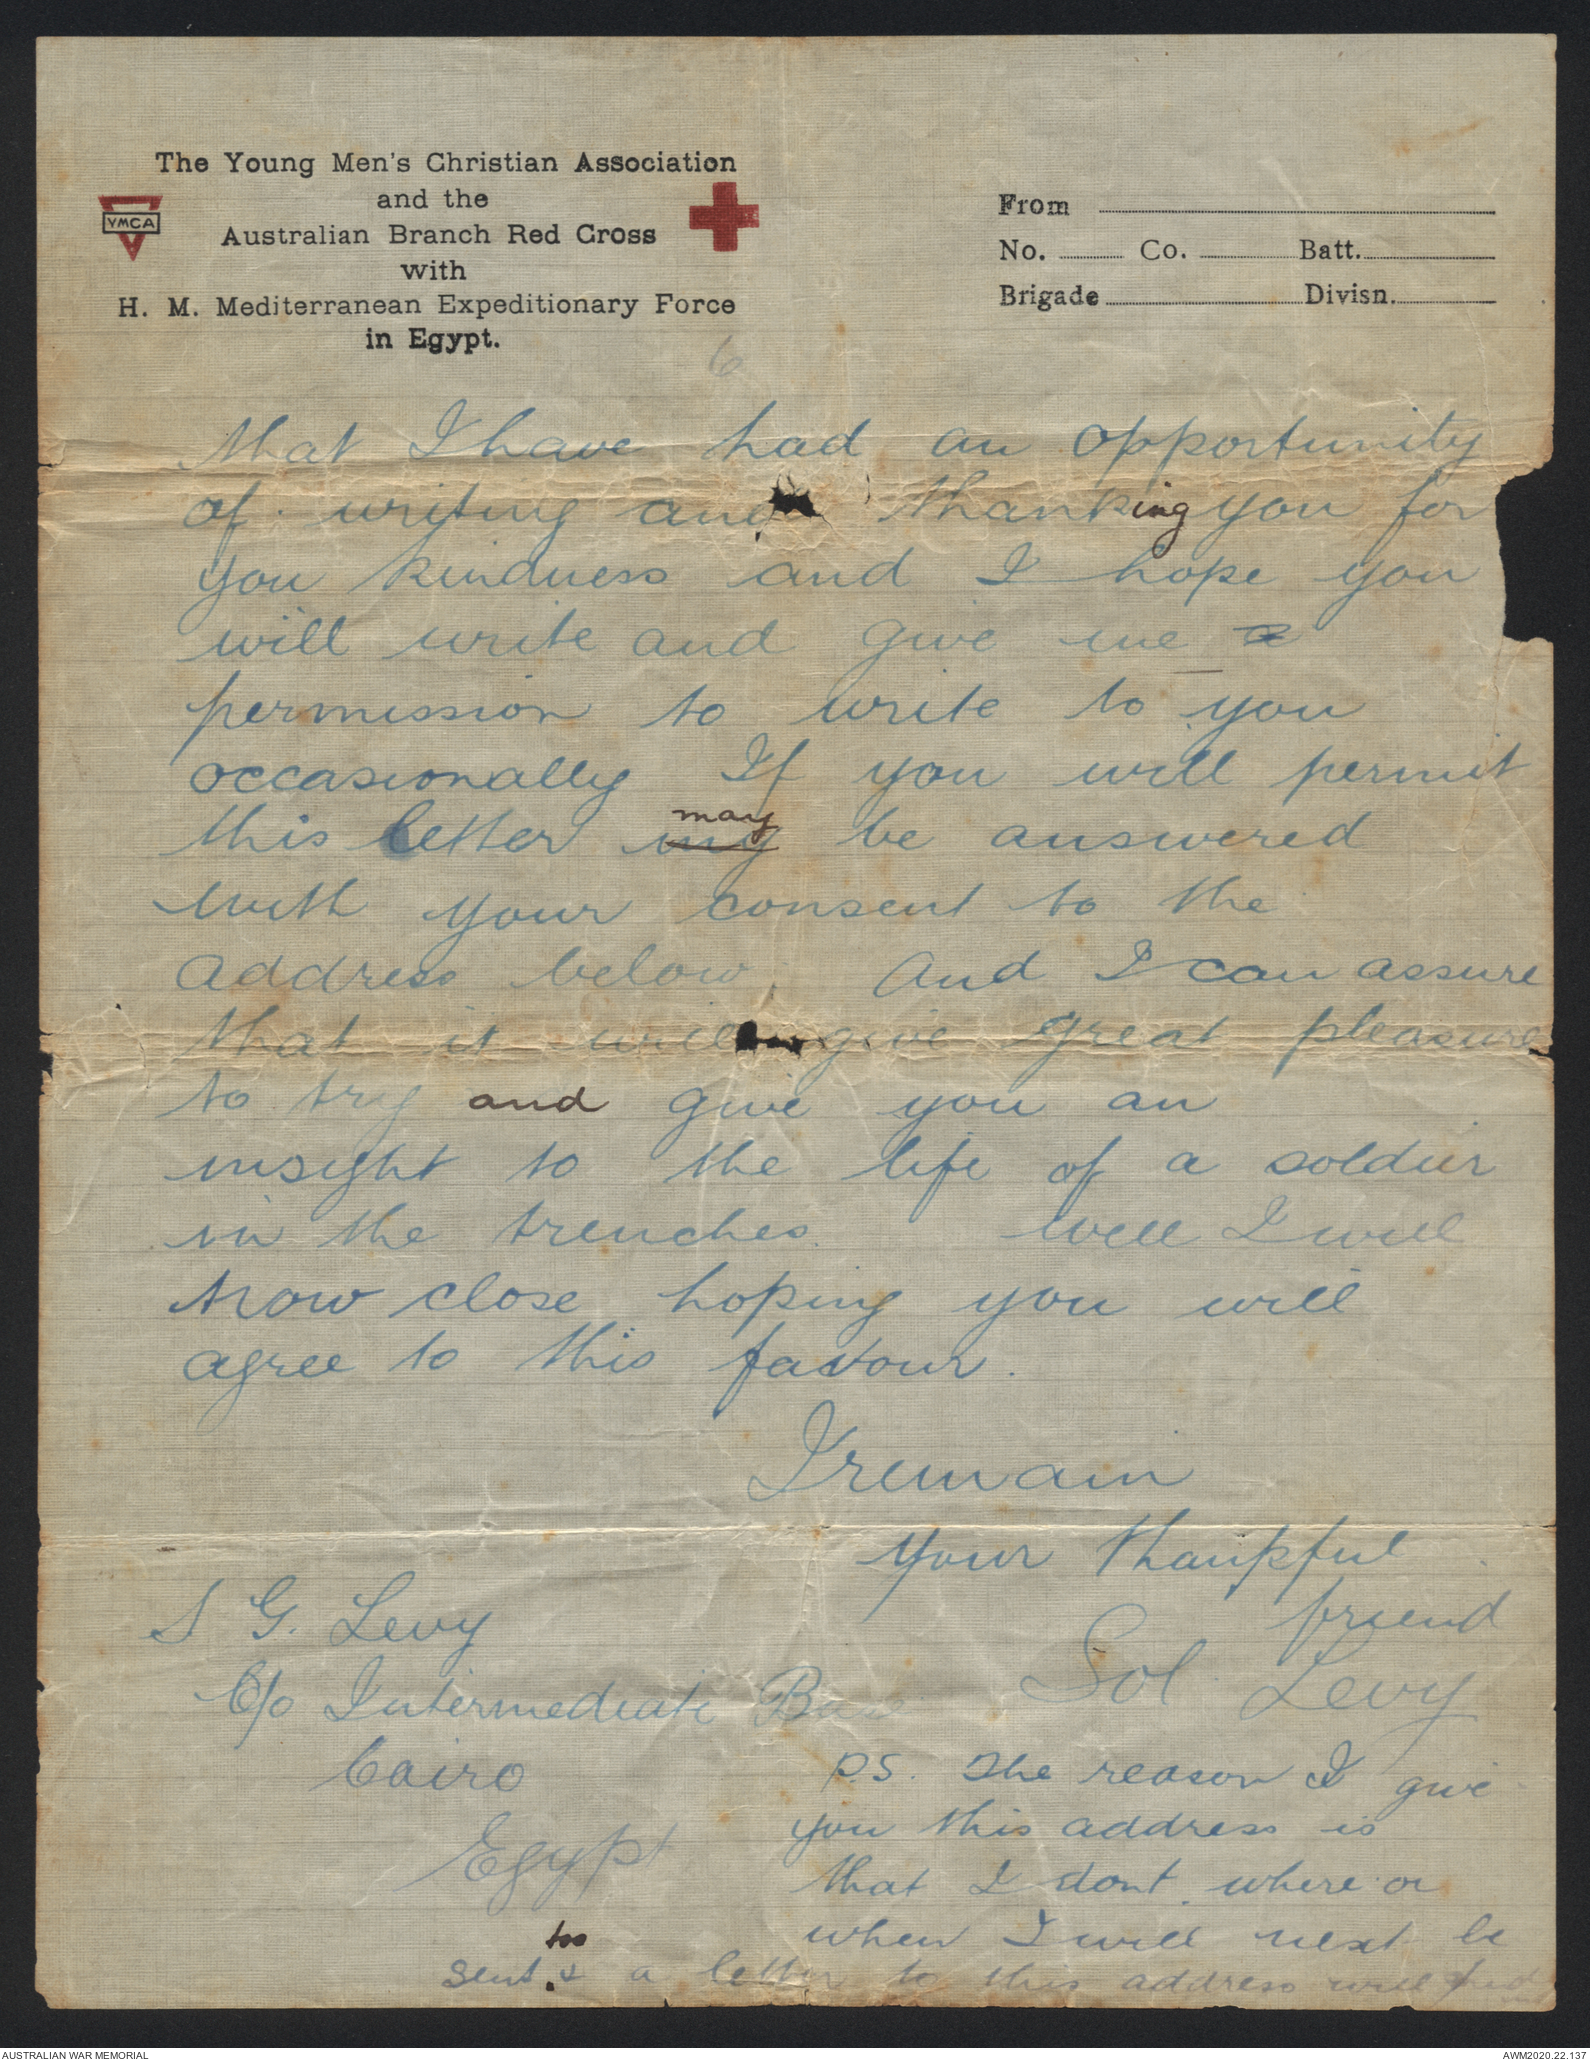 The Young Men's Christian Association
and the
Australian Branch Red Cross
with
H. M. Mediterranean Expeditionary Force
in Egypt.
YMCA
From
No. Co. Batt.
Brigade Divisn.
6
that I have had an opportunity
of writing and thanking you for
you kindness and I hope you
will write and give me a
permission to write to you
occasionally If you will permit
this letter my may be answered
with your consent to the
address below. And I can assure
that it will give great pleasure
to try and give you an
insight to the life of a soldier
in the trenches well I will
now close hoping you will
agree to this favour.
I remain
your thankful
friend
Sol Levy
S G. Levy
C/o Intermediate Base
Cairo
Egypt
P.S. The reason I give
you this address is
that I dont where or
when I will next be
sent too & a letter to this address will find
AUSTRALIAN WAR MEMORIAL
AWM2020.22.137